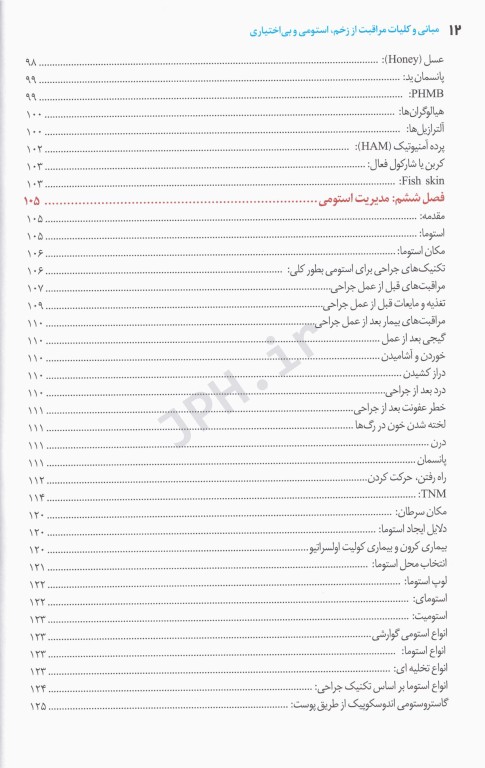 ۱۲ مبانی و کلیات مراقبت از زخم، استومی و بی‌اختیاری
عسل (Honey): ۹۸
پانسمان ید: ۹۹
PHMB: ۹۹
هیالوگران‌ها: ۱۰۰
آلترازیل‌ها: ۱۰۰
پرده آمنیوتیک (HAM): ۱۰۲
کربن یا شارکول فعال: ۱۰۳
Fish skin: ۱۰۳
فصل ششم: مدیریت استومی ۱۰۵
مقدمه: ۱۰۵
استوما: ۱۰۵
مکان استوما: ۱۰۶
تکنیک‌های جراحی برای استومی بطور کلی: ۱۰۶
مراقبت‌های قبل از عمل جراحی ۱۰۷
تغذیه و مایعات قبل از عمل جراحی ۱۰۹
مراقبت‌های بیمار بعد از عمل جراحی ۱۱۰
گیجی بعد از عمل ۱۱۰
خوردن و آشامیدن ۱۱۰
دراز کشیدن ۱۱۰
درد بعد از جراحی ۱۱۰
خطر عفونت بعد از جراحی ۱۱۱
لخته شدن خون در رگ‌ها ۱۱۱
درن ۱۱۱
پانسمان ۱۱۱
راه رفتن، حرکت کردن ۱۱۲
TNM: ۱۱۴
مکان سرطان: ۱۲۰
دلایل ایجاد استوما: ۱۲۰
بیماری کرون و بیماری کولیت اولسراتیو ۱۲۰
انتخاب محل استوما: ۱۲۱
لوپ استوما: ۱۲۲
استومای: ۱۲۲
استومیت: ۱۲۳
انواع استومی گوارشی ۱۲۳
انواع استوما: ۱۲۳
انواع تخلیه ای: ۱۲۳
انواع استوما بر اساس تکنیک جراحی: ۱۲۴
گاستروستومی اندوسکوپیک از طریق پوست: ۱۲۵
JPH.ir